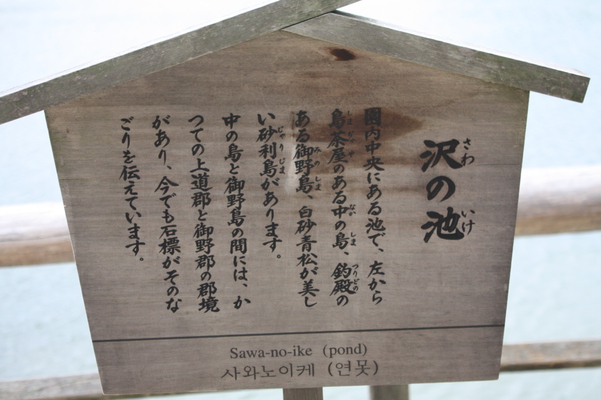 沢の池
園内中央にある池で、左から
島茶屋のある中の島、釣殿の
ある御野島、白砂青松が美し
い砂利島があります。
中の島と御野島の間には、か
つての上道郡と御野郡の郡境
があり、今でも石標がそのな
ごりを伝えています。
Sawa-no-ike (pond)
사와노이케 (연못)